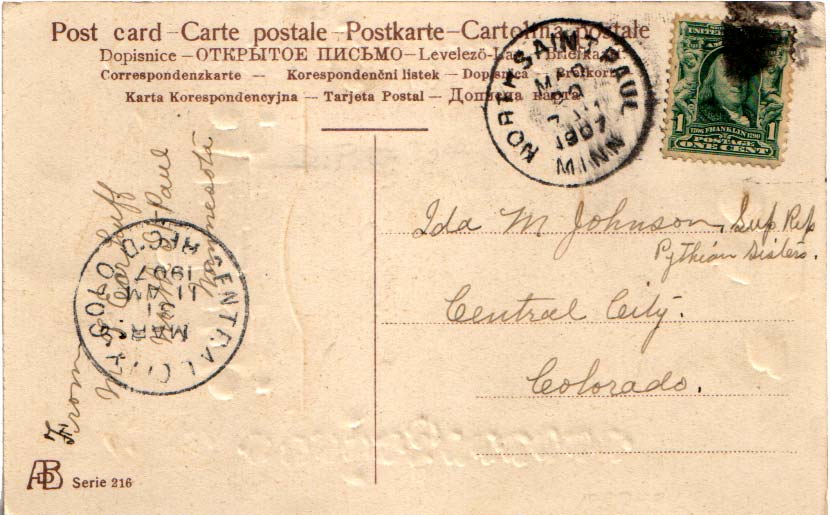 Post card – Carte postale – Postkarte – Cartolina postale
Dopisnice – ОТКРЫТОЕ ПИСЬМО – Levelező-Lap – Briefkaart
Correspondenzkarte — Korespondenční listek — Dopisnica — Brefkort
Karta Korespondencyjna — Tarjeta Postal — Дописна карта
NORTH SAINT PAUL
MINN
1907
1 1
FRANKLIN
POSTAGE
ONE CENT
Ida M Johnson, Sup Rep
Pythian Sisters.
Central City.
Colorado.
From
Paul
Minnesota
CENTRAL CITY COLO
REC'D
MAR
11 AM
1907
Serie 216